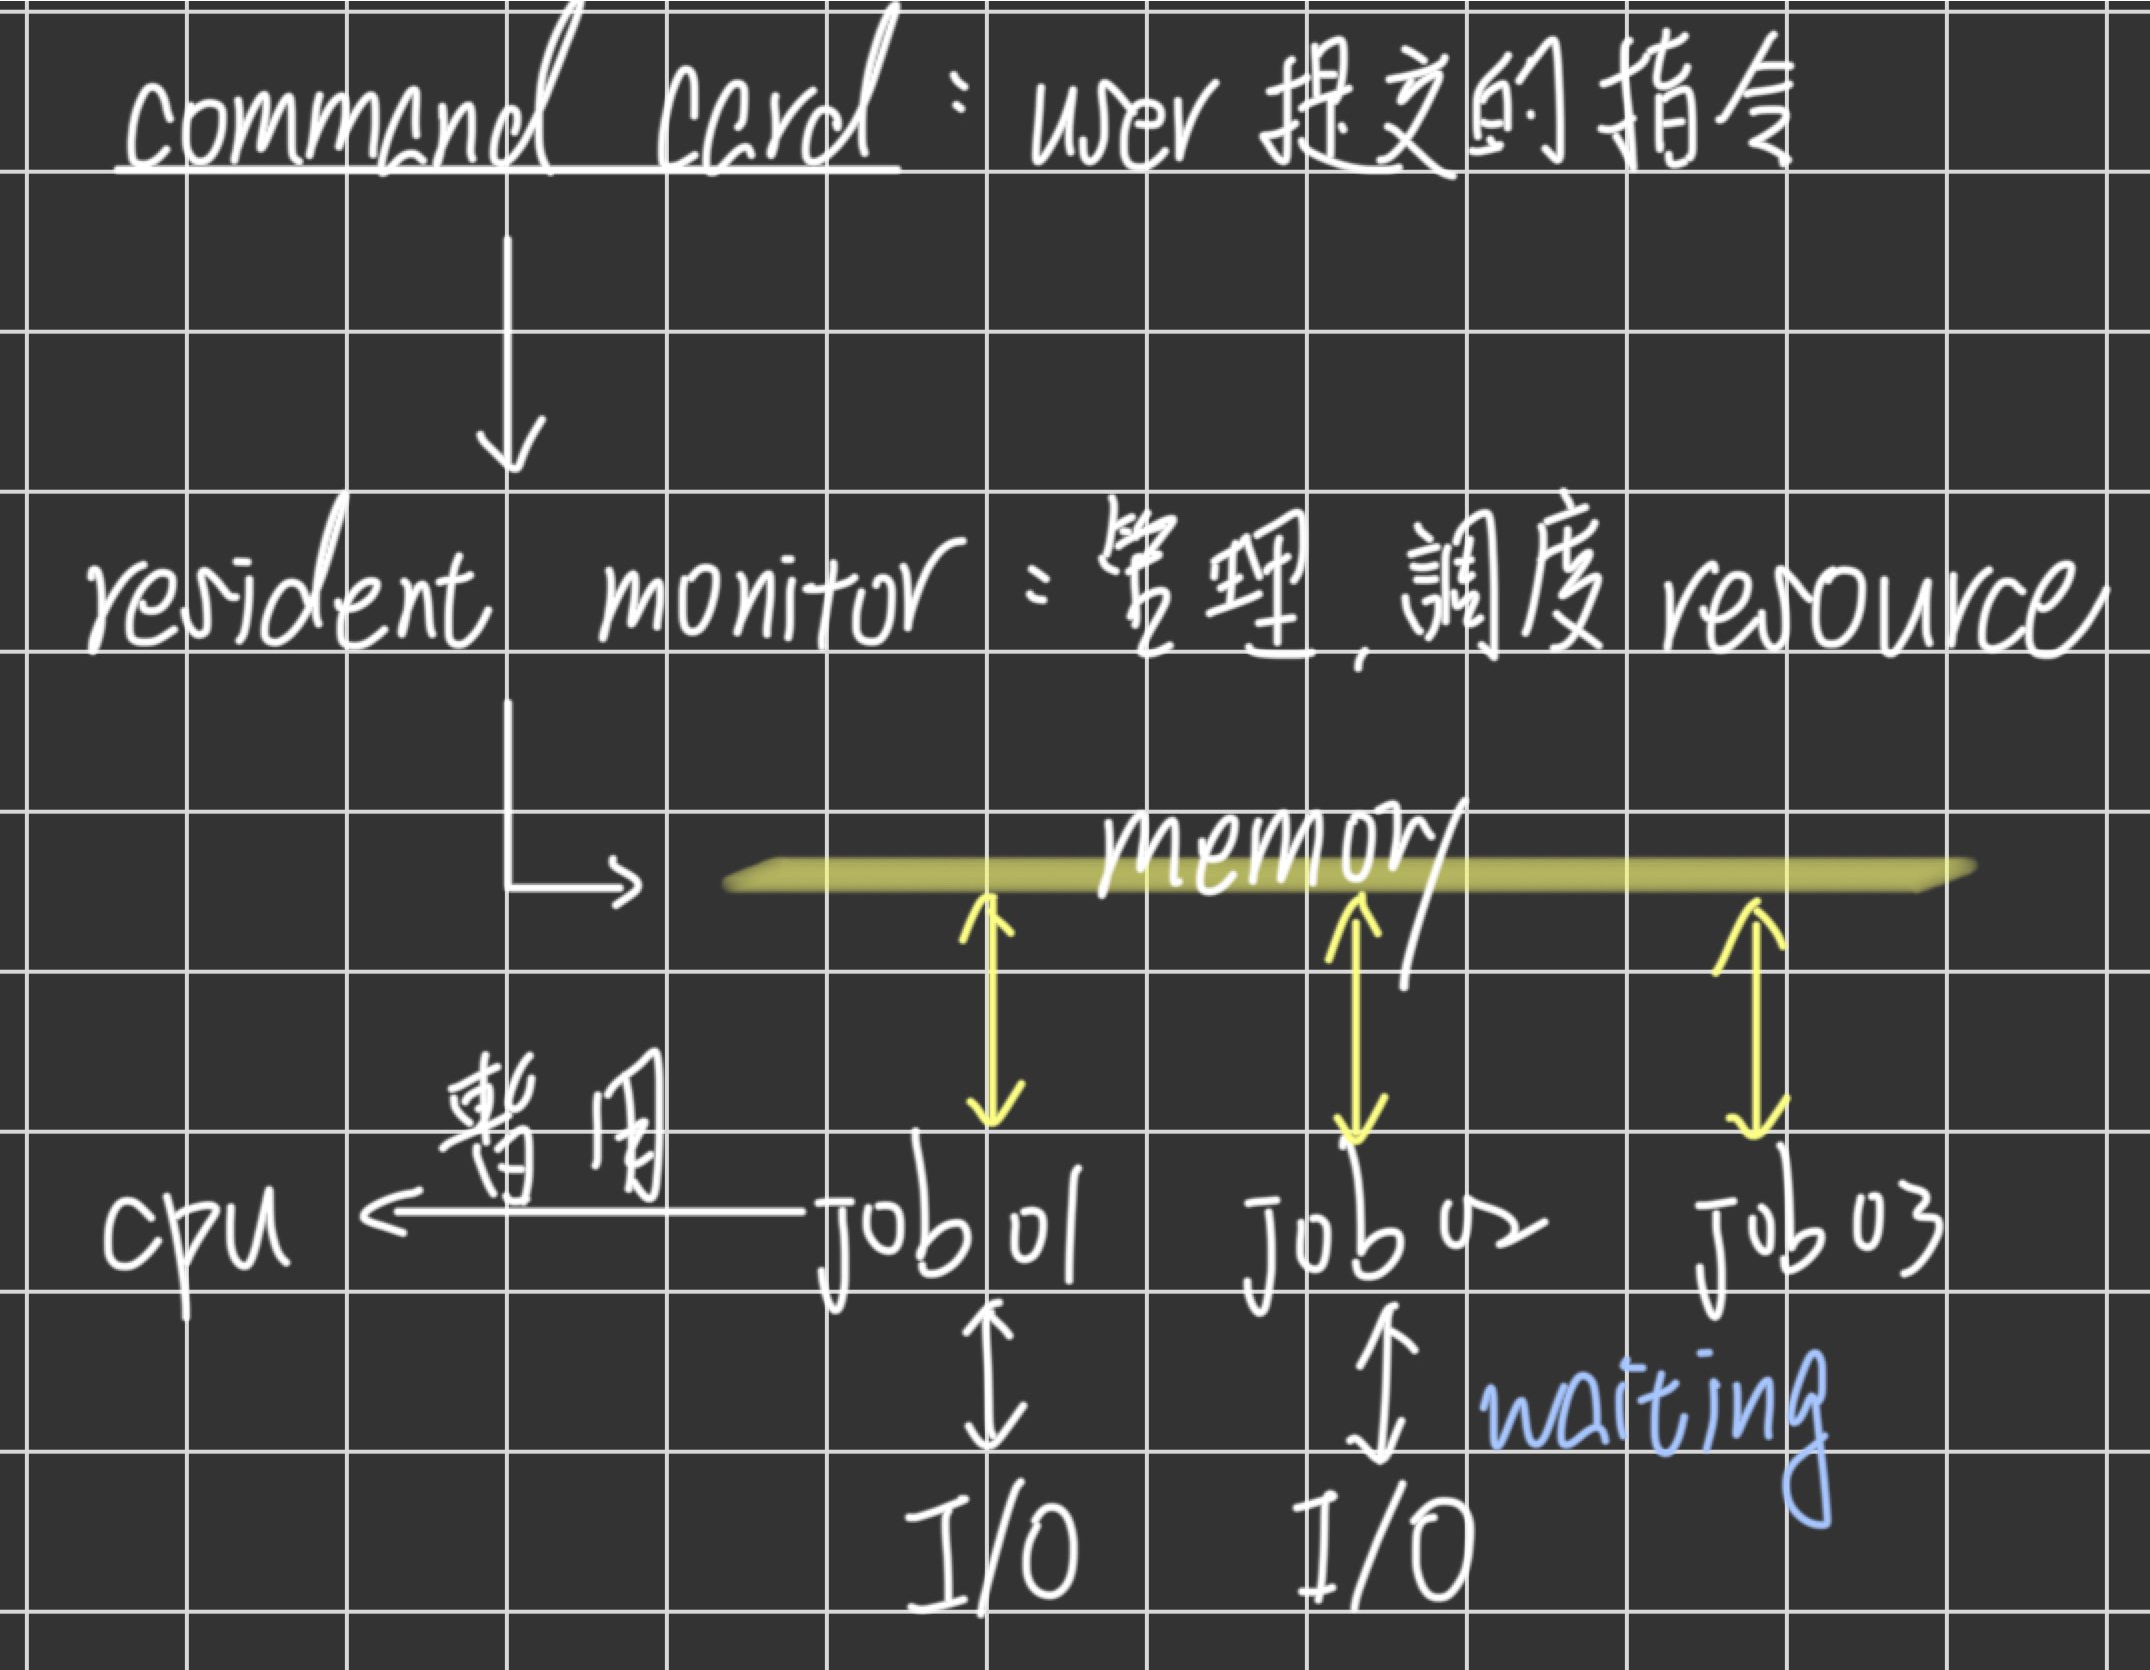 command card : user 提交的指令
resident monitor : 管理、調度 resource
memory
暫用
cpu job 01 job 02 job 03
waiting
I/O I/O